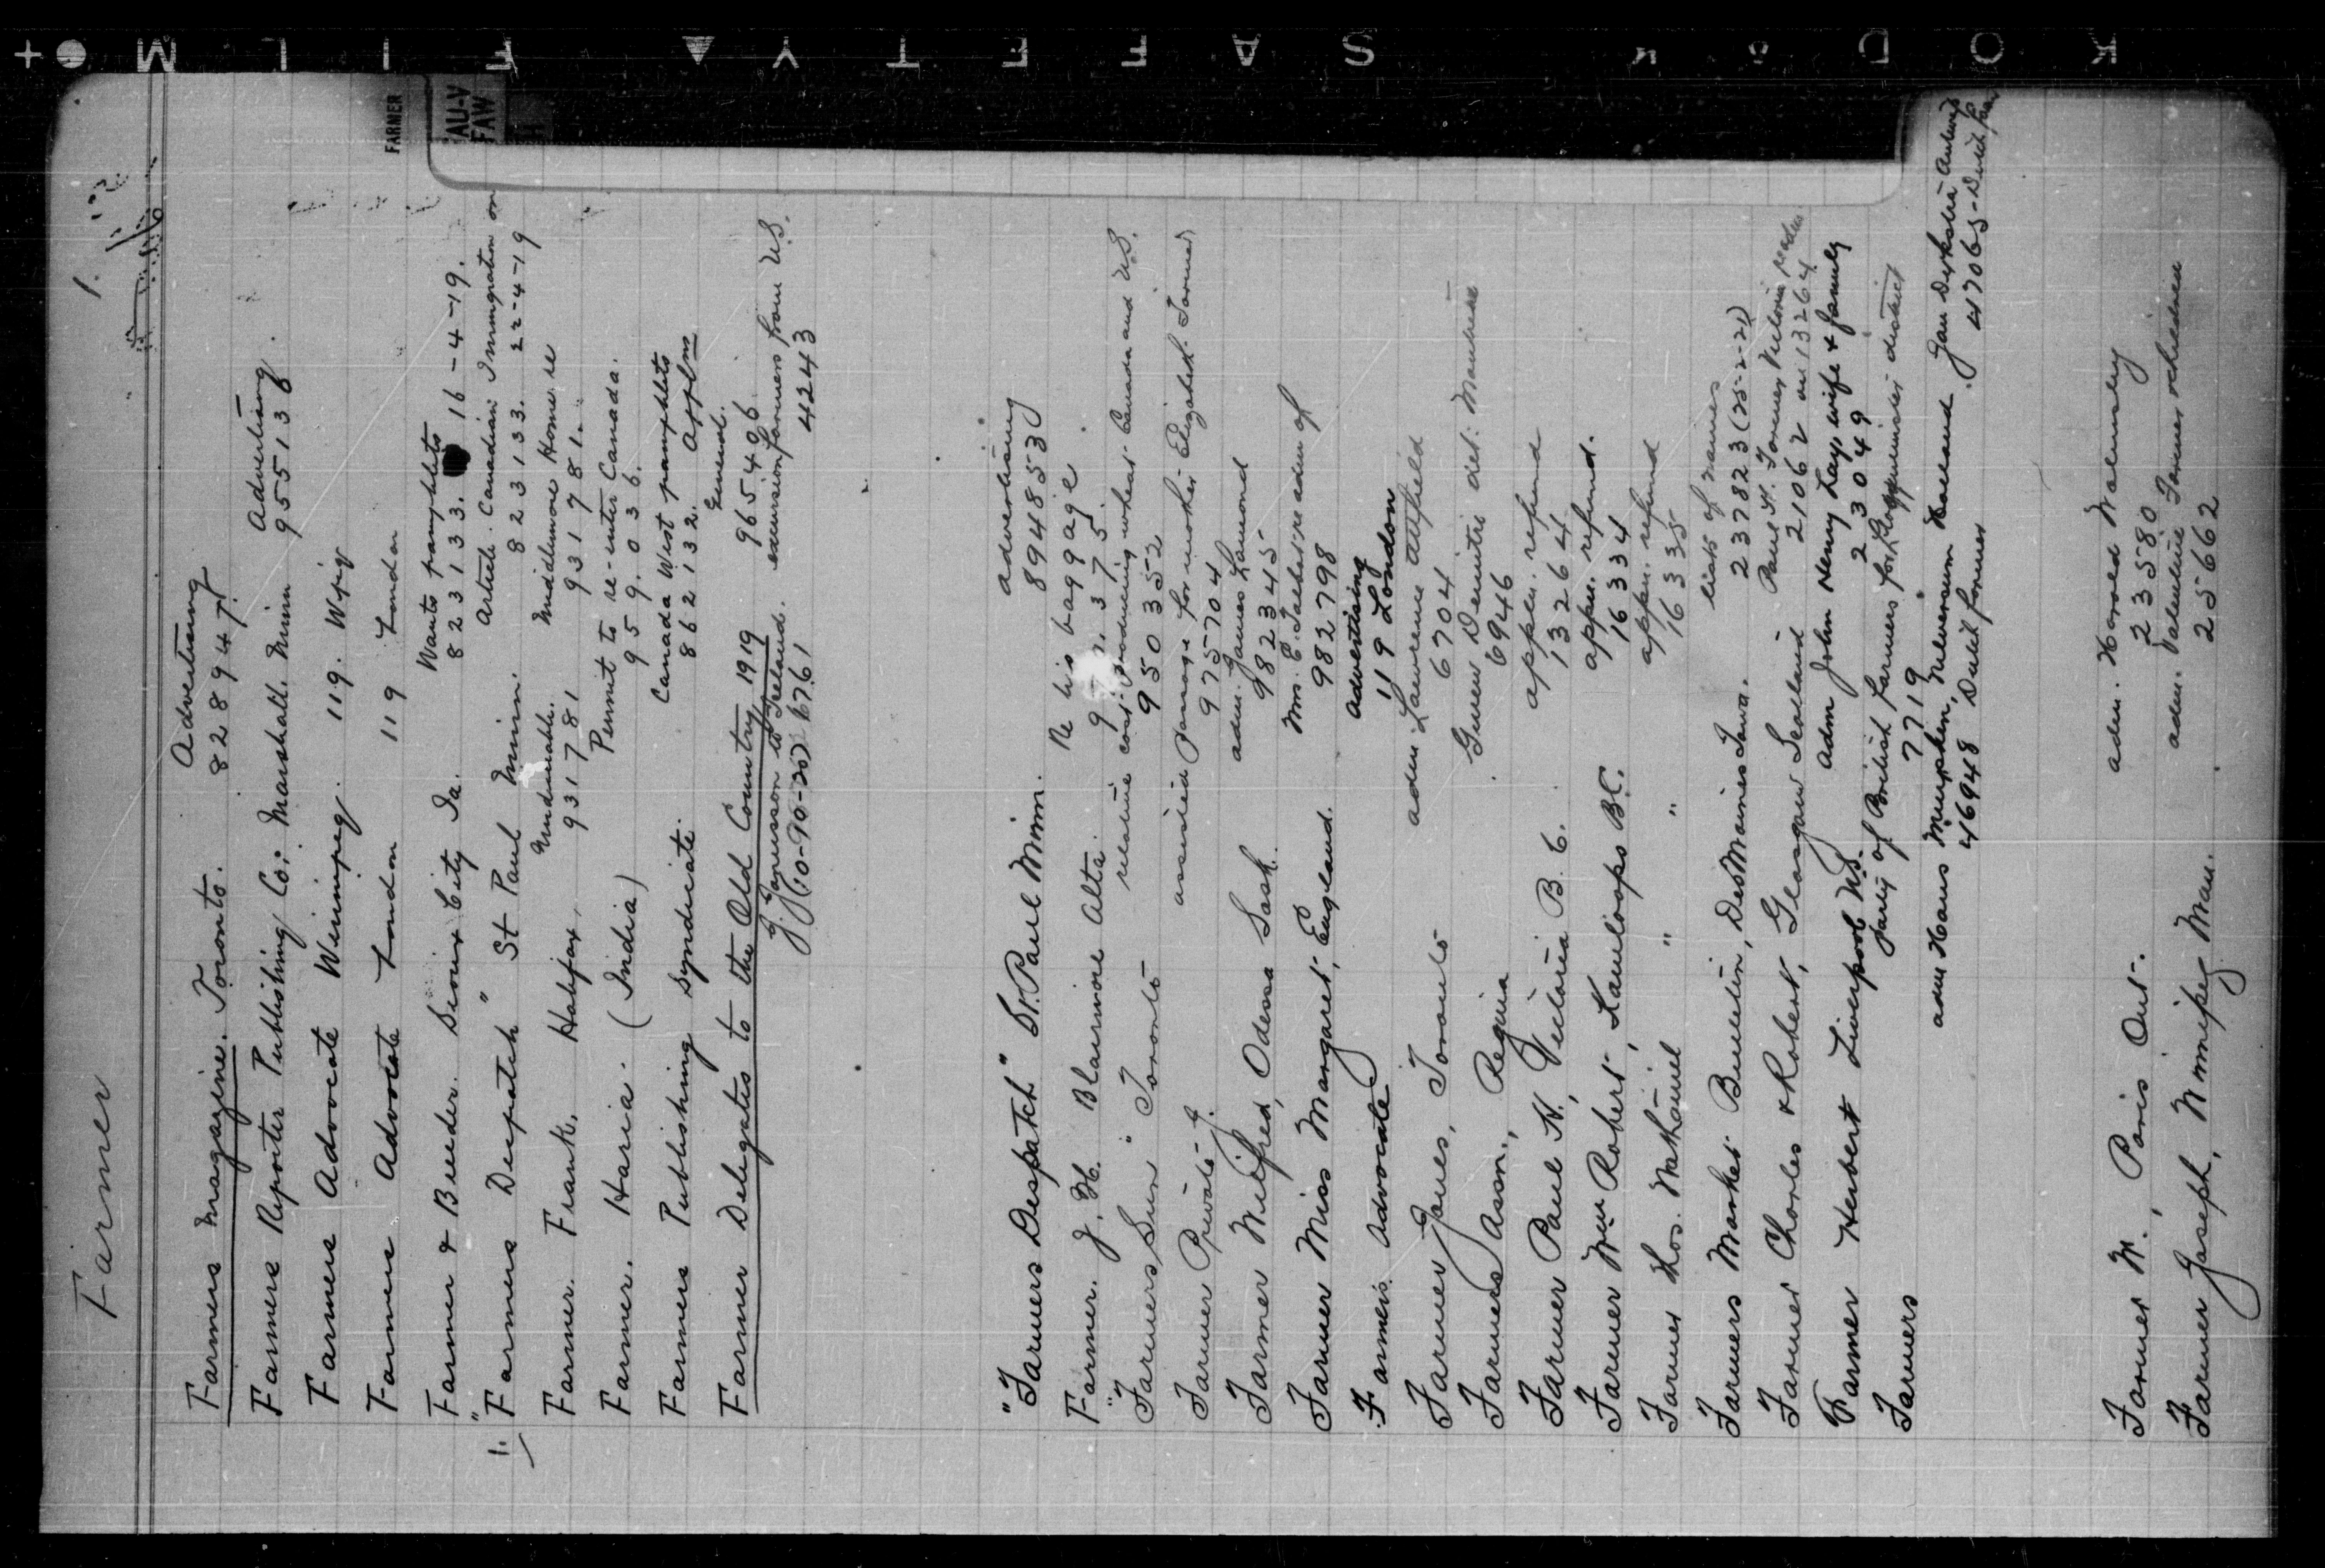 KODAK SAFETY FILM
Farmer
1.
FARMER
FAU-V
FAW
Farmers Magazine. Toronto. Advertising
828947.
Farmers Reporter Publishing Co: Marshall. Minn Advertising.
955138
Farmers Advocate Winnipeg. 119. Wpg
Farmers Advocate London 119 London
Farmer & Breeder. Sioux City Ia. Wants pamphlets
823133. 16-4-19.
1. "Farmers Despatch" St Paul Minn. Article. Canadian Immigration on
823133. 22-4-19
Farmer. Frank. Halifax, Undesirable. Middlemore Home re
931781 931781.
Farmer. Haria. (India) Permit to re-enter Canada.
959.036.
Farmers Publishing Syndicate. Canada West pamphlets
862132. Applns
Farmer Delegates to the Old Country 1919 General.
965406.
J. Gamesson to Ireland. excursion farmers from U.S.
(10-90-20) 6761 42443
"Farmers Despatch" St. Paul Minn. advertising
894853
Farmer. J. H. Blairmore Alta. Re his baggage.
375.
"Farmers Sun" Toronto relative cost producing wheat Canada and U.S.
950352
Farmer Private J. assisted passage for mother Elizabeth Farmer
975704
Farmer Wilfred, Odessa Sask. adm. James Lamond
982345
Farmer Miss Margaret, England. Mrs. E. re adm of
982798
Farmers Advocate Advertising
119 London
Farmer James, Toronto adm Lawrence Attfield
6704
Farmers Assn., Regina Gunew Demitri det: Manhire
6946
Farmer Paul H, Victoria B.C. appln. refund
13264
Farmer Wm Robert, Kamloops BC. appln. refund.
16334
Farmer Thos. Nathaniel " " appln. refund
16335
Farmers Market Bulletin, Des Moines Iowa. lists of names
237823 (25-2-21)
Farmer Charles & Robert, Glasgow Scotland Paul H. Farmer Victoria
21062 on 13264
Farmer Herbert Liverpool NS. Adm John Henry Lay wife & family
23049
Farmers party of British farmers for district
7719
adm Hans Hilversum Holland. Jan Dirkstra
46948 Dutch farmer 417065-Dutch
Farmer W., Paris Ont. adm. Harold Walmsley
23580
Farmer Joseph, Winnipeg Man. adm. Valentine Farmer
25662